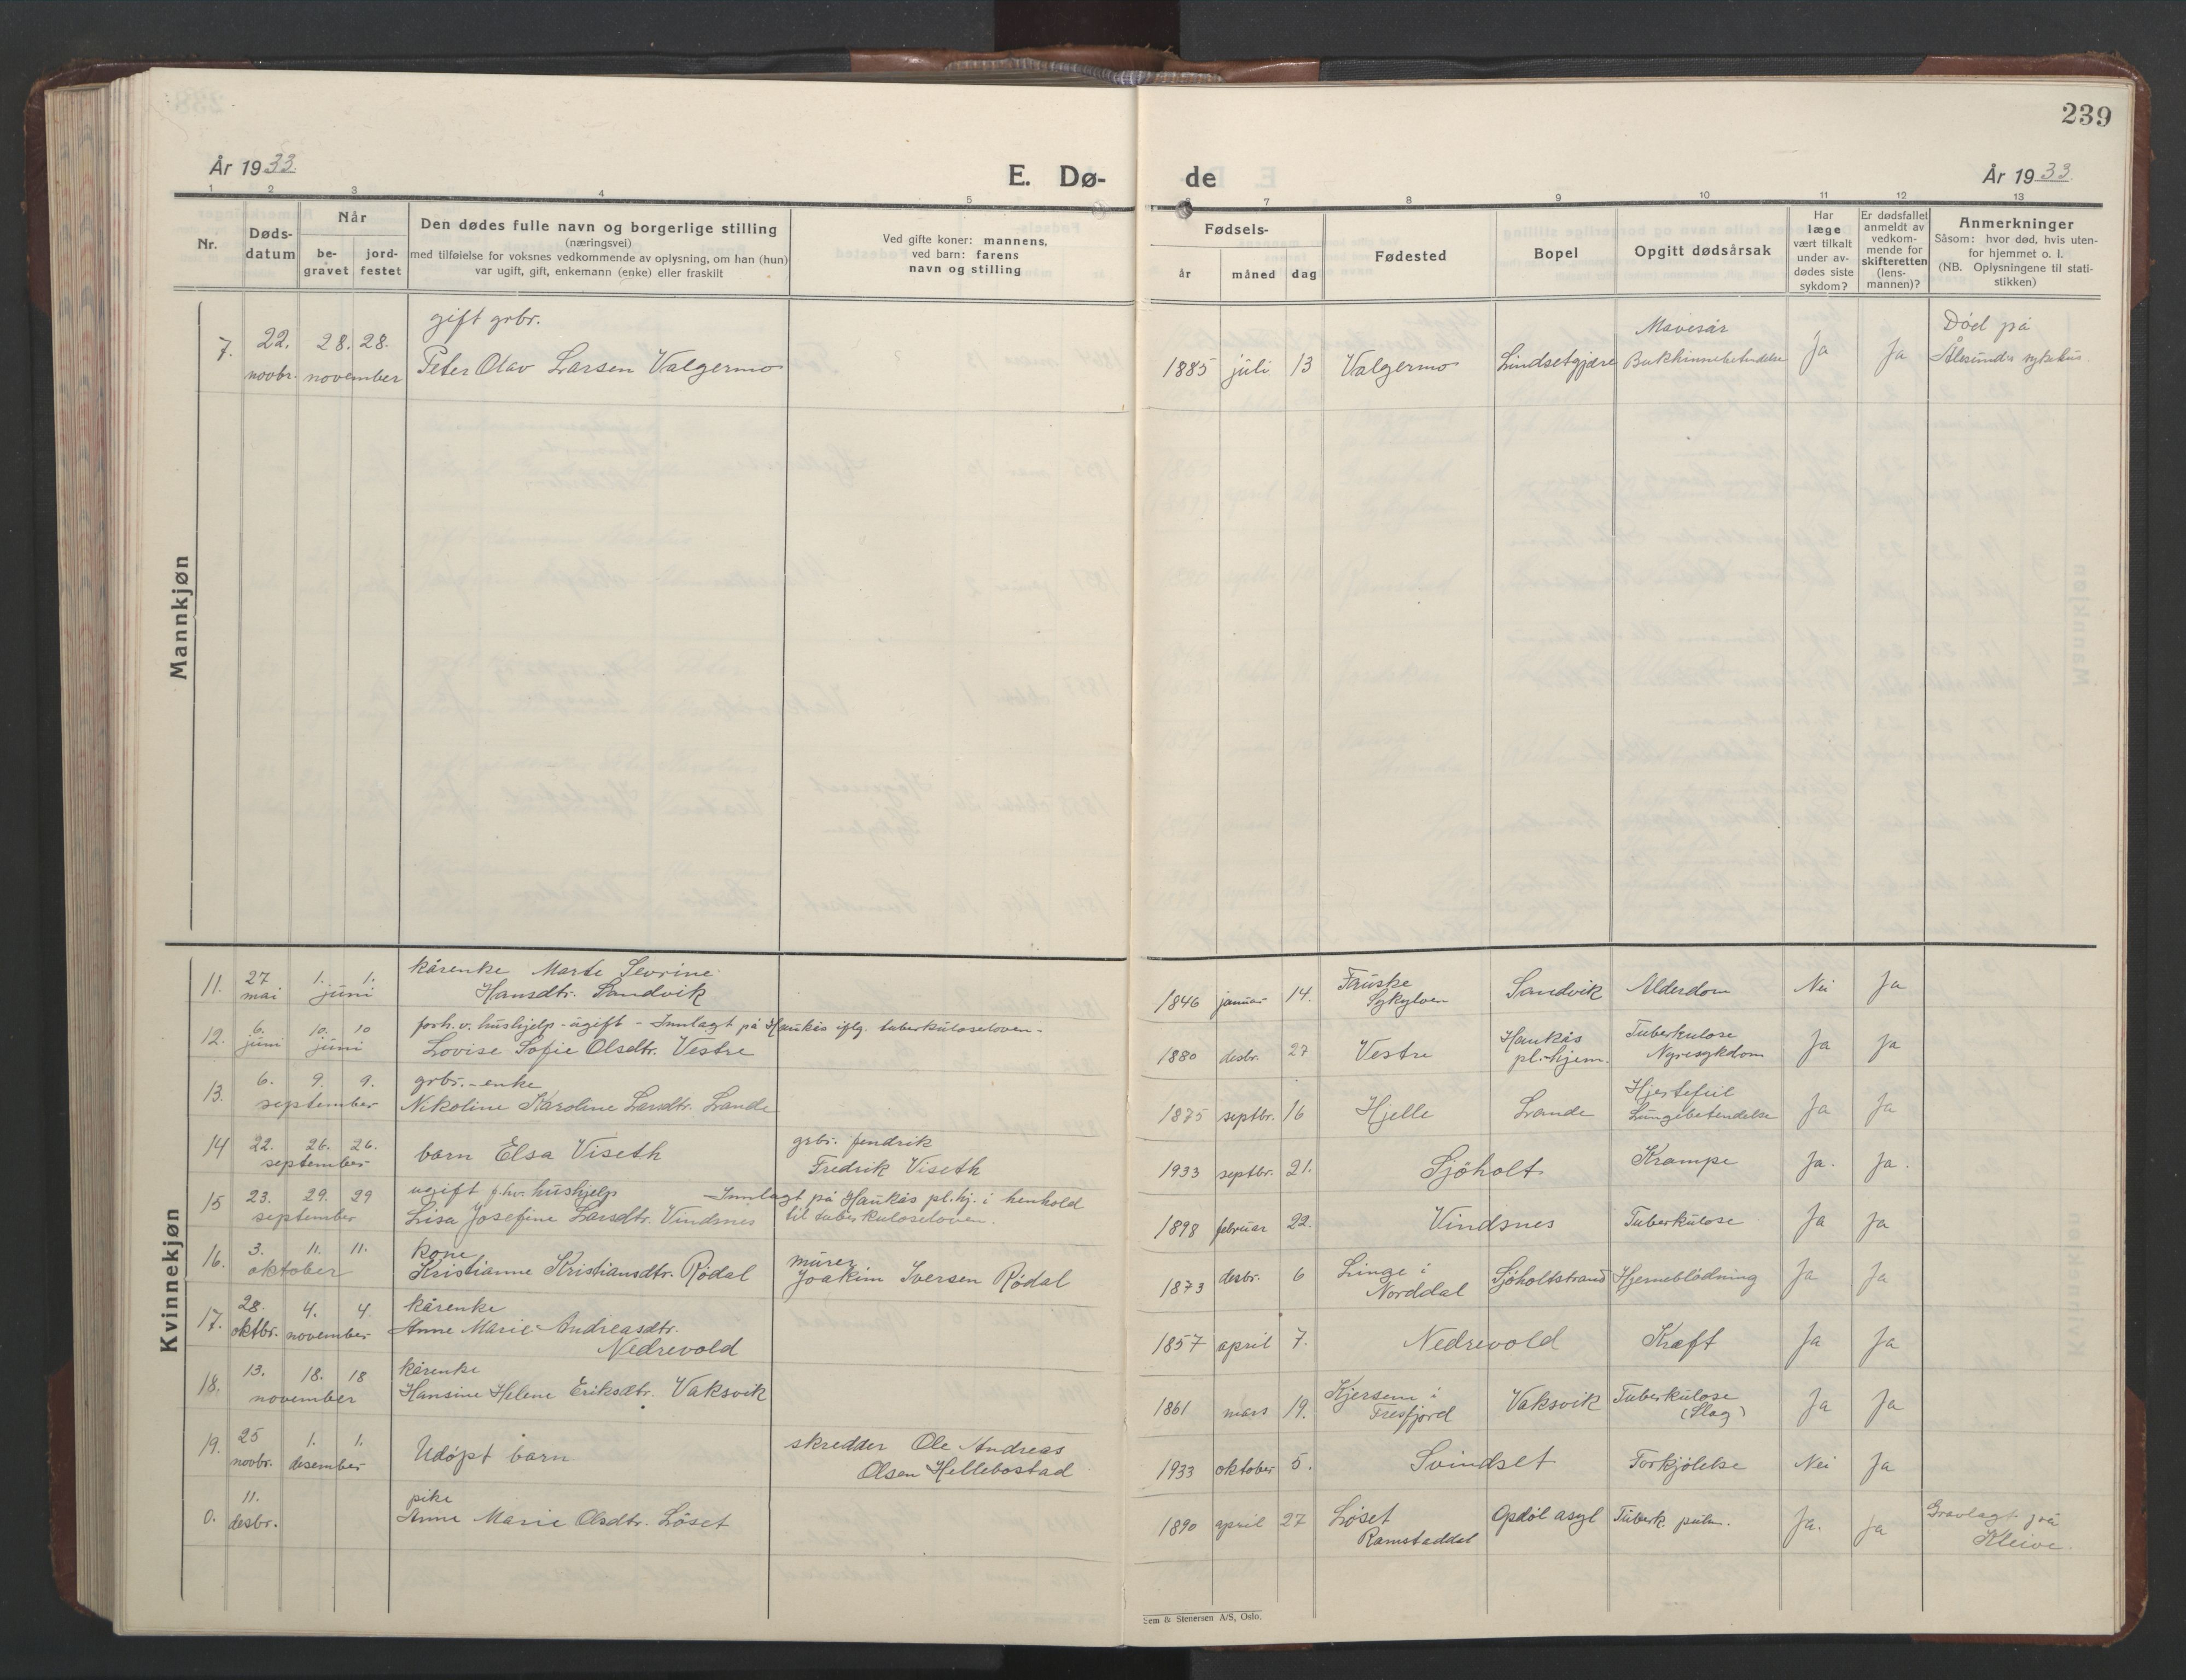 239
År 1933.
E. Dø-
de
År 1933.
1 2 3 4 5
6 7 8 9 10 11 12 13
Nr.
Døds-
datum
Når
be-
gravet
jord-
festet
Den dødes fulle navn og borgerlige stilling
(næringsvei)
med tilføielse for voksnes vedkommende av oplysning, om han (hun)
var ugift, gift, enkemann (enke) eller fraskilt
Ved gifte koner: mannens,
ved barn: farens
navn og stilling
Fødsels-
år
måned
dag
Fødested
Bopel
Opgitt dødsårsak
Har
læge
vært tilkalt
under av-
dødes siste
sykdom?
Er dødsfallet
anmeldt av
vedkom-
mende for
skifteretten
(lens-
mannen)?
Anmerkninger
Såsom: hvor død, hvis uten-
for hjemmet o. l.
(NB. Oplysningene til stati-
stikken)
Mannkjøn
gift grbr.
7. 22. 28. 28.
novbr. november Peter Olav Larsen Valgermo
1885 juli 13 Valgermo Lindsetgjære Mavesår
Bukhinnebetendelse Ja Ja Død på
Ålesunds sykehus.
Kvinnekjøn
11. 27 mai 1. 1. juni kårenke Marte Sevrine
Hansdtr. Sandvik
1846 januar 14. Fauske
Sykylven Sandvik Alderdom Nei Ja
12. 6. juni 10. 10 juni forh.v. hushjelp - ugift - Innlagt på Haukås iflg. tuberkuloseloven -
Lovise Sofie Olsdtr. Vestre
1880 desbr. 27 Vestre Haukås
pl.-hjem. Tuberkulose
Nyresykdom Ja Ja
13. 6. 9. 9. september grbr.-enke
Nikoline Karoline Larsdtr. Lande
1875 septbr. 16 Hjelle Lande Hjertefeil
Lungebetendelse Ja Ja
14 22. 26. 26. september barn Elsa Viseth
grbr. fendrik
Fredrik Viseth
1933 septbr. 21. Sjöholt Krampe Ja. Ja.
15 23. 29. 29 september ugift f.hv. hushjelp
Lisa Josefine Larsdtr. Vindsnes
- Innlagt på Haukås pl.hj. i henhold
til tuberkuloseloven.
1898 februar 22. Vindsnes Tuberkulose Ja Ja
16. 3. 11. 11. oktober kone
Kristianne Kristiansdtr. Rödal
murer
Joakim Iversen Rødal
1873 desbr. 6 Linge i
Norddal Sjöholtstrand Hjerneblödning Ja Ja
17. 28. oktbr. 4. 4. november kårenke
Anne Marie Andreasdtr.
Nedrevold
1857 april 7. Nedrevold Kræft Ja Ja
18. 13. 18. 18 november kårenke
Hansine Helene Eriksdtr. Vaksvik
1861 mars 19. Kjersem i
Tresfjord Vaksvik Tuberkulose
(Slag) Ja Ja
19. 25 novbr. 1. 1. desember Udöpt barn
skredder Ole Andreas
Olsen Hellebostad
1933 oktober 5. Svindset Forkjölelse Nei Ja
0. 11. desbr. pike
Anne Marie Olsdtr. Löset
1890 april 27 Løset
Ramstaddal Opdöl asyl Tuberk. pulm. Ja. Ja Gravlagt på
Kleive.
Sem & Stenersen A/S, Oslo.